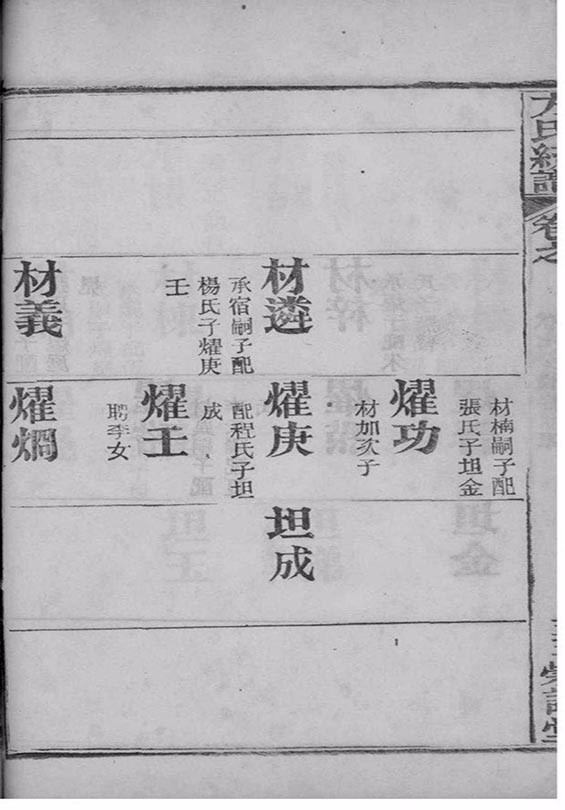 氏
譜
卷之
材遴
承宿嗣子配
楊氏子燿庚
壬
材義
材楠嗣子配
張氏子坦金
燿功
材加次子
燿庚
配程氏子坦
成
燿壬
聘李女
燿烱
坦成